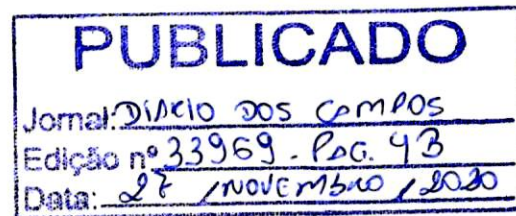 PUBLICADO
Jornal: DIÁRIO DOS CAMPOS
Edição nº 33969 - PAG. 4B
Data: 27 / NOVEMBRO / 2020